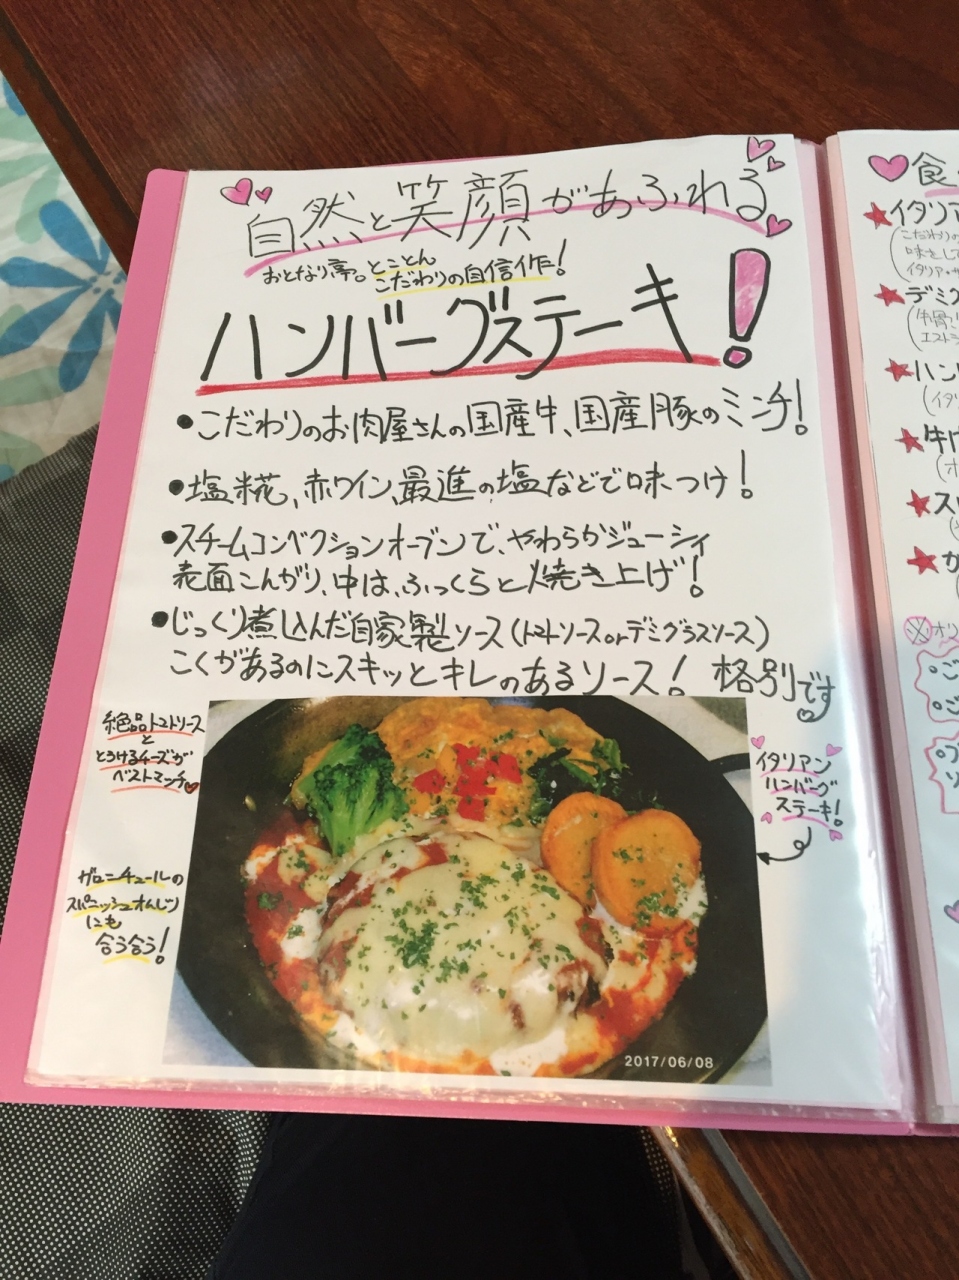 自然と笑顔があふれる
おとなり亭。とことん
こだわりの自信作!
ハンバーグステーキ!
●こだわりのお肉屋さんの国産牛、国産豚のミンチ!
●塩糀、赤ワイン、最進の塩などで味つけ!
●スチームコンベクションオーブンで、やわらかジューシィ
表面こんがり、中は、ふっくらと焼き上げ!
●じっくり煮込んだ自家製ソース(トマトソースorデミグラスソース)
こくがあるのにスキッとキレのあるソース! 格別です
絶品トマトソース
と
とろけるチーズが
ベストマッチ
ガロニチュールの
スパニッシュオムレツ
にも
合う合う!
イタリアン
ハンバーグ
ステーキ!
2017/06/08
食
★イタリア
(こだわりの
味をして
イタリア
★デミグ
(牛骨
★ハン
(イタ
★牛
★ス
★か
※オリ